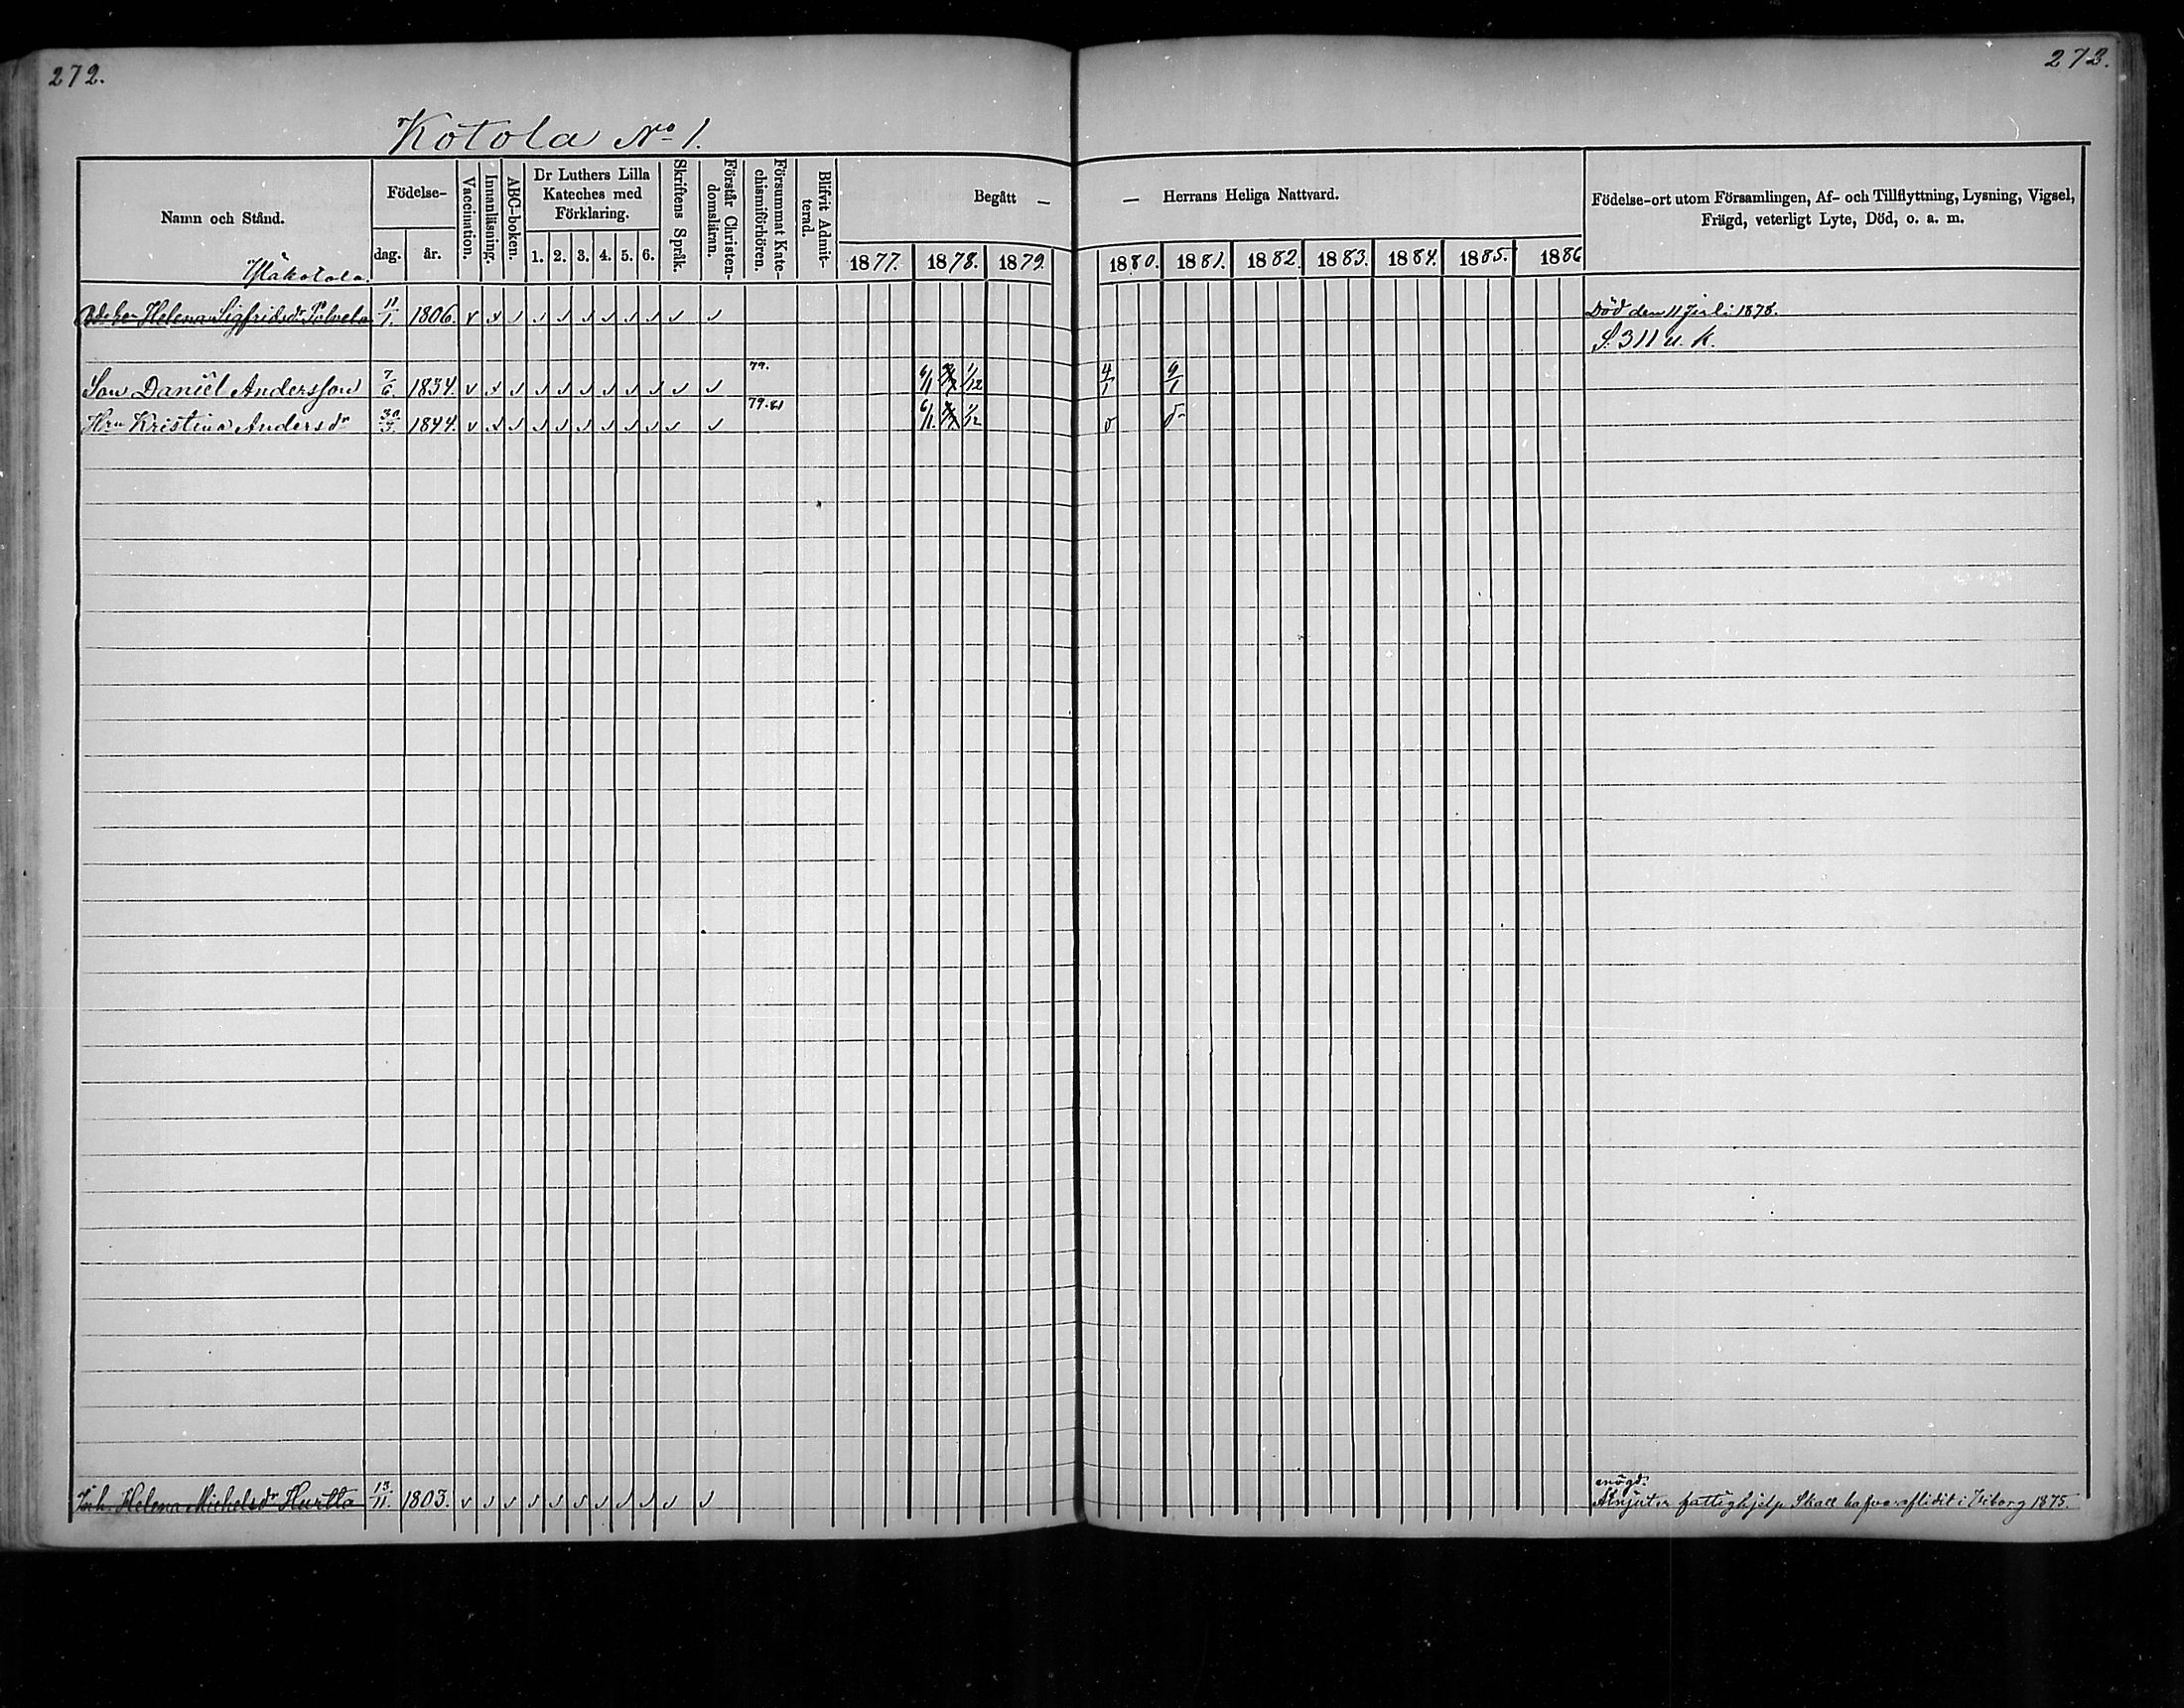 272.
272.
Kotola No 1.
Namn och Stånd.
Födelse-
dag.
år.
Vaccination.
Innanläsning.
ABC-boken.
Dr Luthers Lilla
Kateches med
Förklaring.
1. 2. 3. 4. 5. 6.
Skriftens Språk.
Förstår Christen-
domsläran.
Försummat Kate-
chismiförhören.
Blifvit Admit-
terad.
Begått —
— Herrans Heliga Nattvard.
1877. 1878. 1879. 1880. 1881. 1882. 1883. 1884. 1885. 1886
Födelse-ort utom Församlingen, Af- och Tillflyttning, Lysning, Vigsel,
Frägd, veterligt Lyte, Död, o. a. m.
Helena Sigfridsdr 11/1. 1806. Död den 11 Juli 1878.
S. 311 u. k.
79.
Son Daniel Andersson 7/6. 1834. 6/1 1/12 4/1 9/1
79. 81
Hru Kristina Andersdr 30/3. 1844. 6/1. 1/12
enögd.
Inh. Helena Michelsdr Hurtta 13/11. 1803. Åtnjuter fattighjelp Skall hafva aflidit i Viborg 1875.